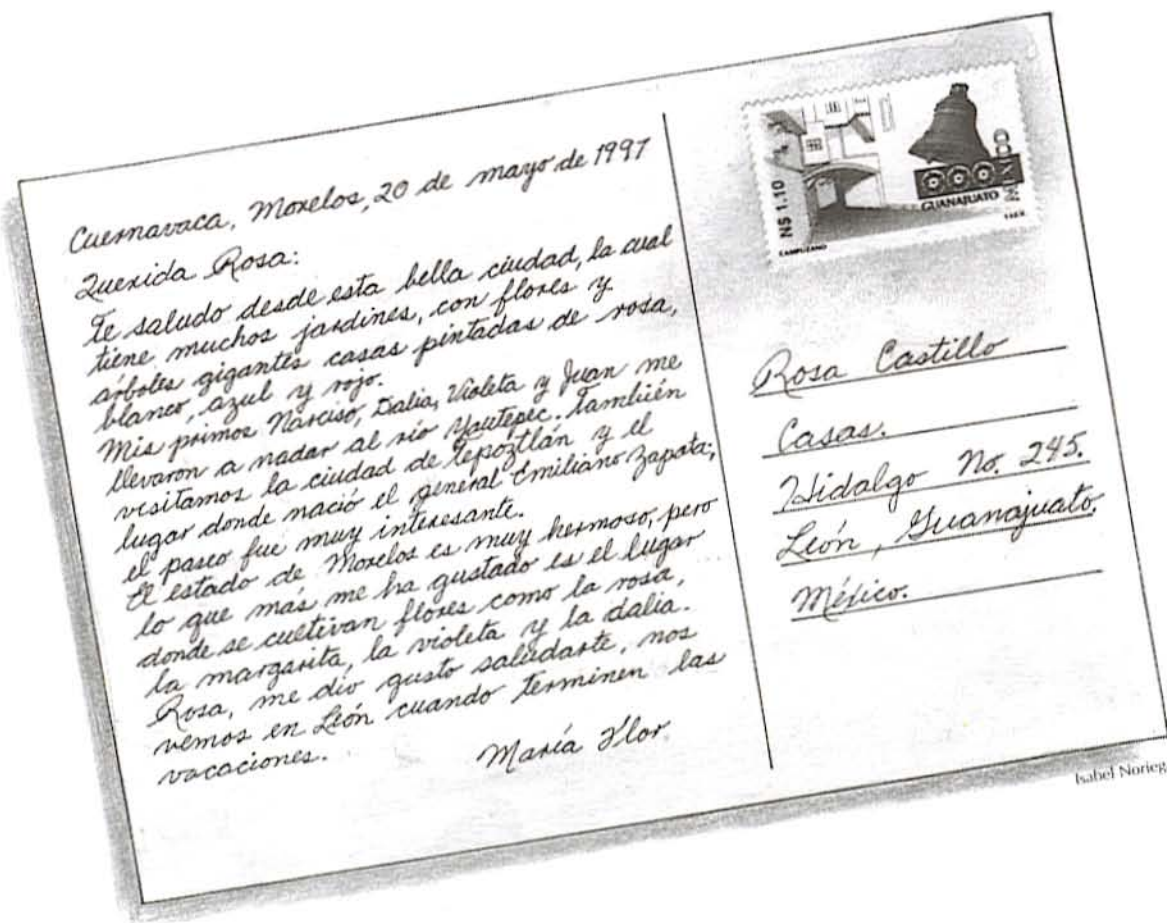 Cuernavaca, Morelos, 20 de mayo de 1997
Querida Rosa:
Te saludo desde esta bella ciudad, la cual
tiene muchos jardines, con flores y
árboles gigantes casas pintadas de rosa,
blanco, azul y rojo.
Mis primos Narciso, Dalia, Violeta y Juan me
llevaron a nadar al río Yautepec. También
visitamos la ciudad de Tepoztlán y el
lugar donde nació el general Emiliano Zapata;
el paseo fue muy interesante.
El estado de Morelos es muy hermoso, pero
lo que más me ha gustado es el lugar
donde se cultivan flores como la rosa,
la margarita, la violeta y la dalia.
Rosa, me dio gusto saludarte, nos
vemos en León cuando terminen las
vacaciones.
María Flor.
N$ 1.10
GUANAJUATO
MEXICO
CAMPUZANO
Rosa Castillo
Casas.
Hidalgo No. 245.
León, Guanajuato.
México.
Isabel Norieg